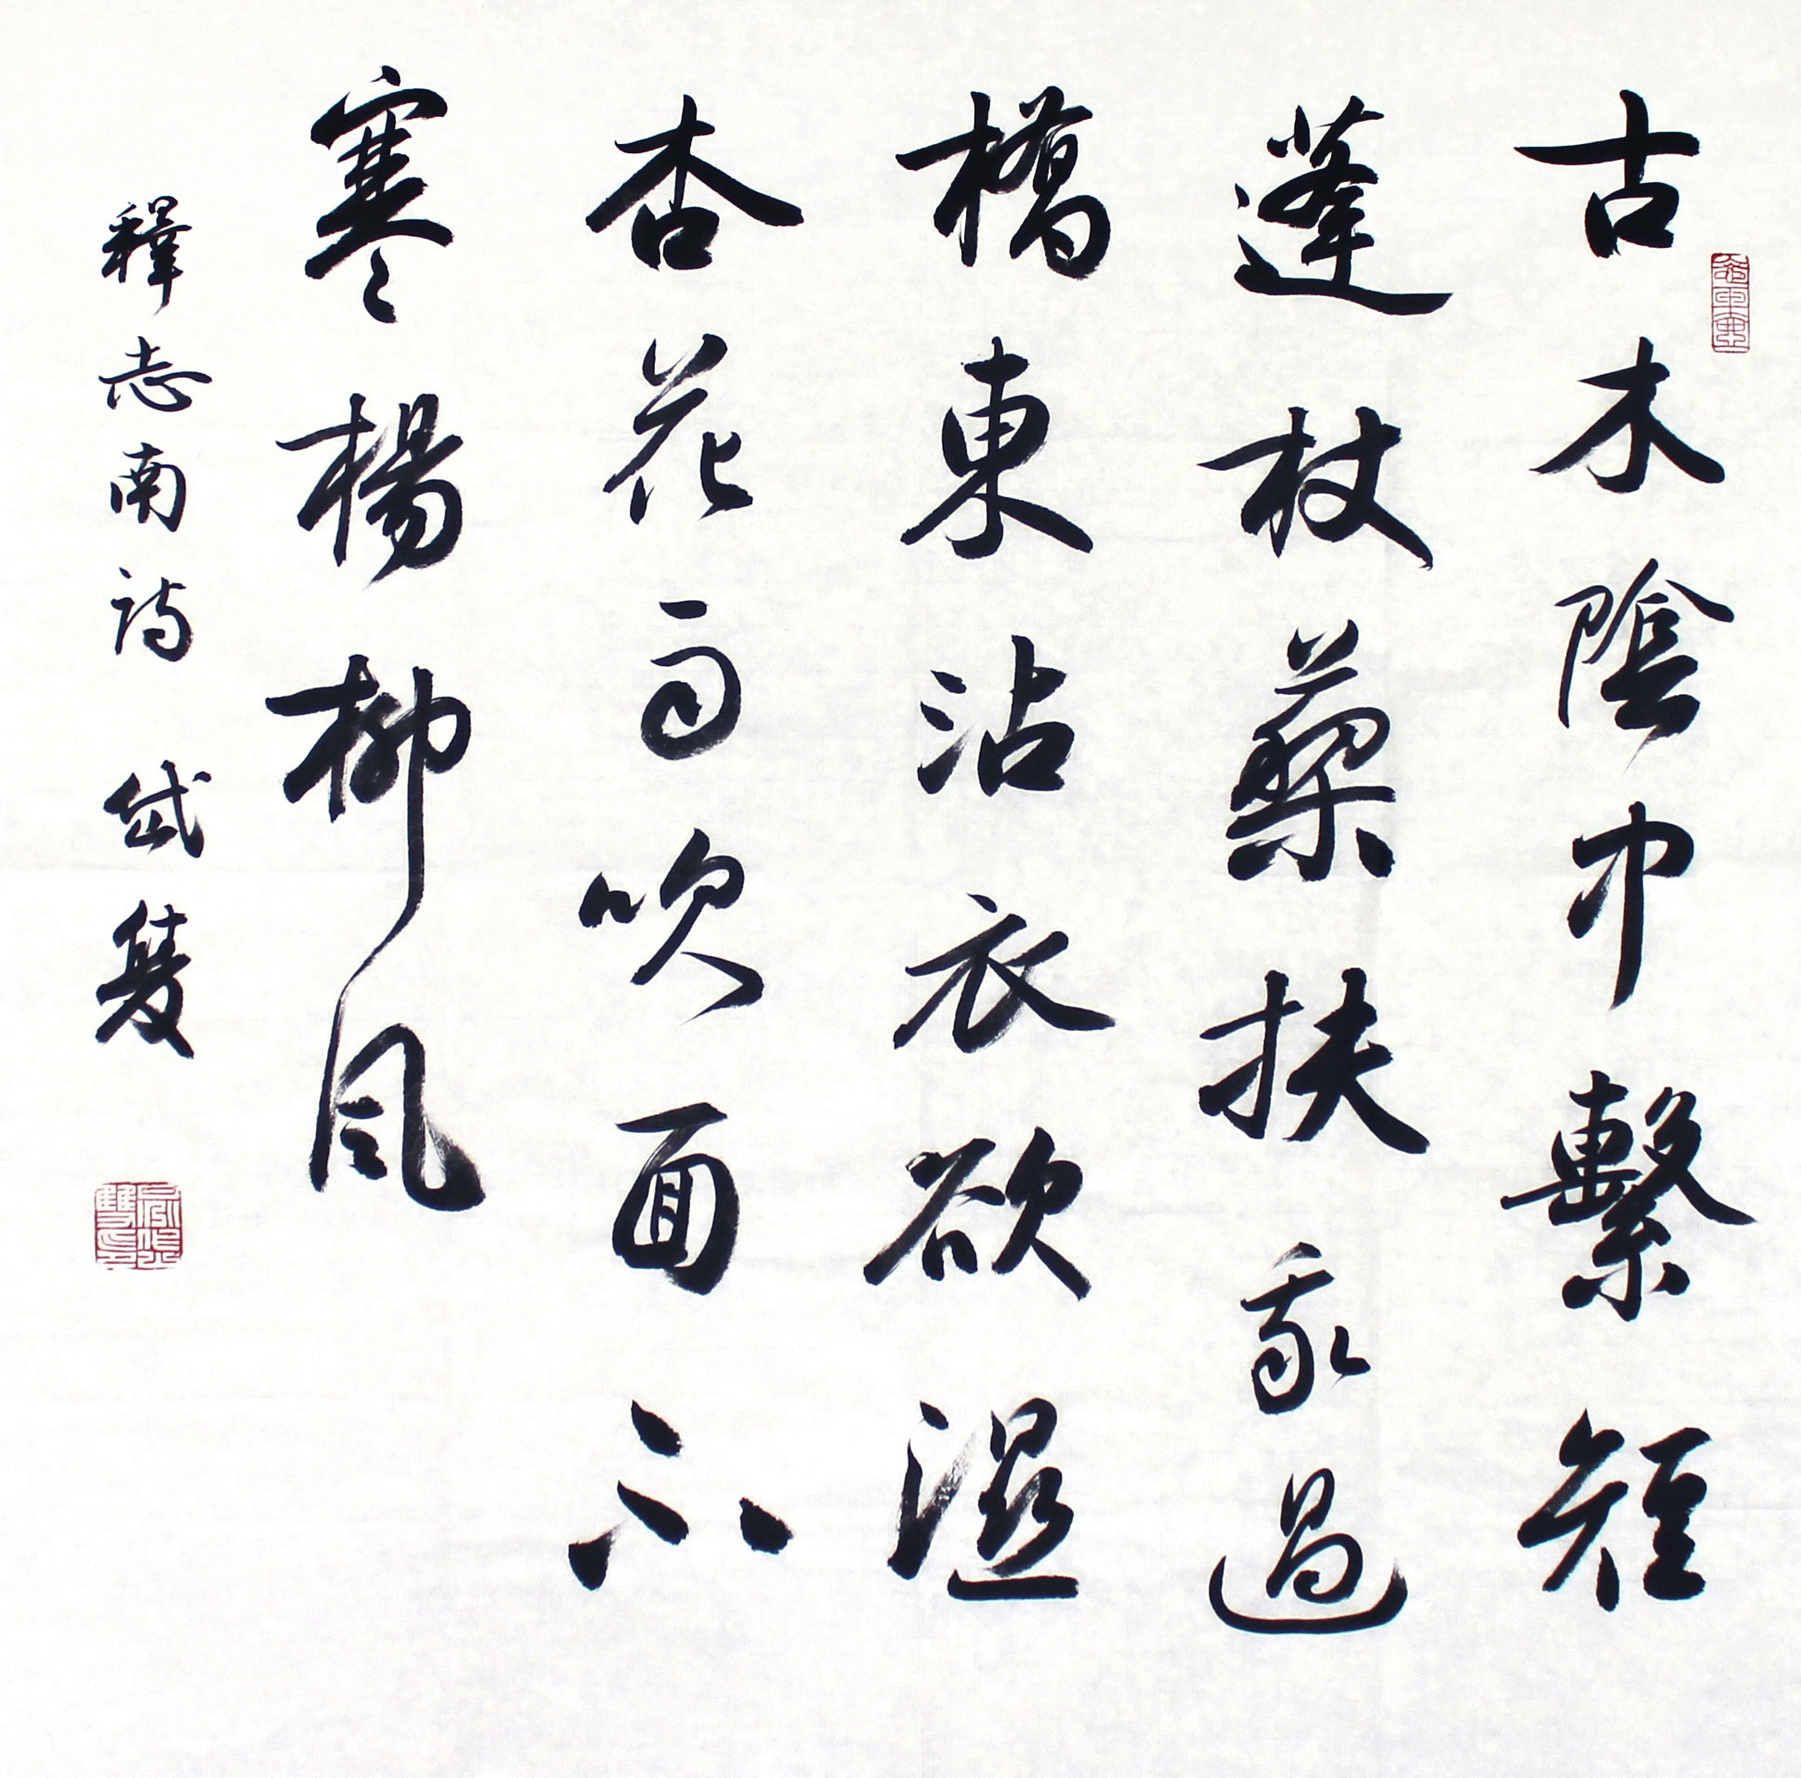 古木陰中繫短
蓬杖藜扶我過
橋東沾衣欲濕
杏花雨吹面不
寒楊柳風
釋志南詩 岱雙